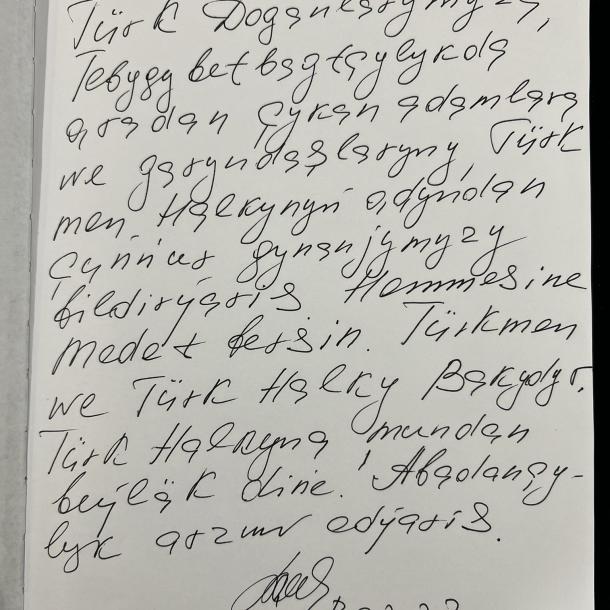 Türk Doganlarymyza,
Tebygy betbagtçylykda
aradan çykan adamlara
we garyndaşlaryny, Türk
men Halkynyň adyndan
çyňňur gynanjymyzy
bildirýäris Hemmesine
medet bersin. Türkmen
we Türk Halky Bakydyr.
Türk Halkyna mundan
beýläk dine! Abadançy-
lyk arzuw edýäris.